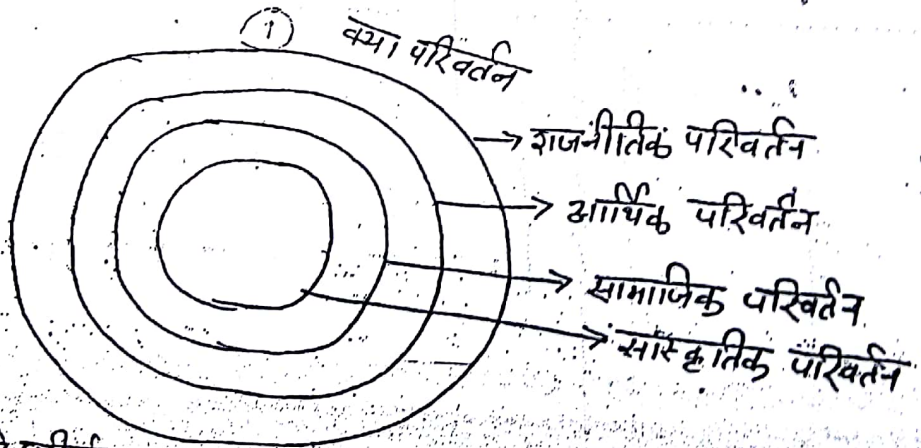 1
क्या परिवर्तन
राजनीतिक परिवर्तन
आर्थिक परिवर्तन
सामाजिक परिवर्तन
सांस्कृतिक परिवर्तन